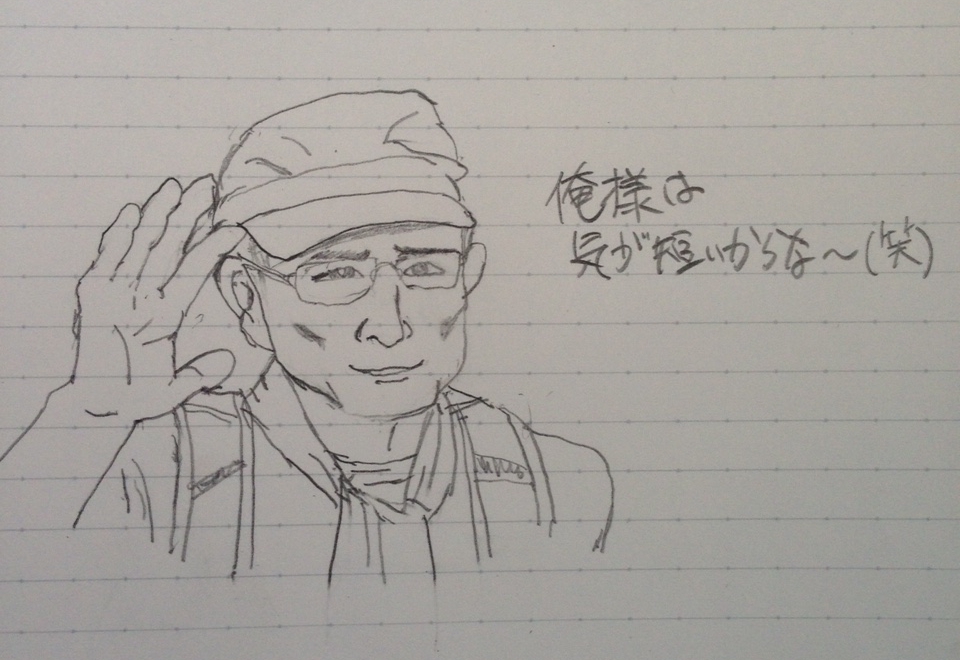 俺様は
気が短いからな～(笑)